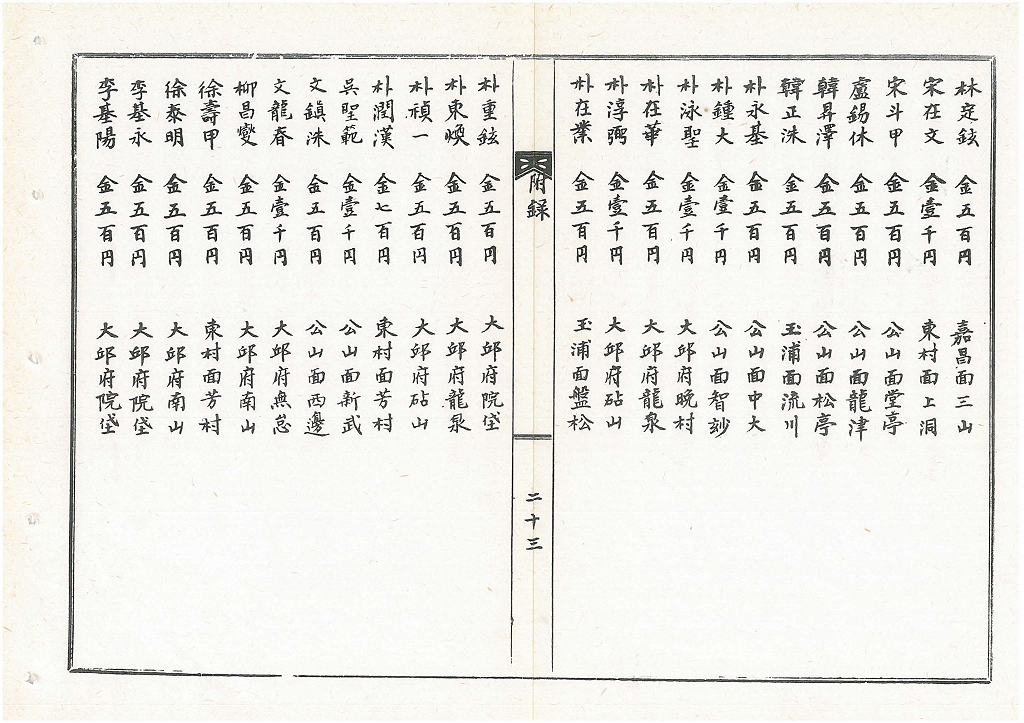 林定鉉 金五百円 嘉昌面三山
宋在文 金壹千円 東村面上洞
宋斗甲 金五百円 公山面堂亭
盧錫休 金五百円 公山面龍津
韓昇澤 金五百円 公山面松亭
韓正洙 金五百円 玉浦面流川
朴永基 金五百円 公山面中大
朴鍾大 金壹千円 公山面智妙
朴泳聖 金壹千円 大邱府晩村
朴在華 金五百円 大邱府龍泉
朴淳弼 金壹千円 大邱府砧山
朴在業 金五百円 玉浦面盤松
附録
二十三
朴重鉉 金五百円 大邱府院垈
朴東煥 金五百円 大邱府龍泉
朴禎一 金五百円 大邱府砧山
朴潤漢 金七百円 東村面芳村
吳聖範 金壹千円 公山面新武
文鎭洙 金五百円 公山面西邊
文龍春 金壹千円 大邱府無怠
柳昌燮 金五百円 大邱府南山
徐壽甲 金五百円 東村面芳村
徐泰明 金五百円 大邱府南山
李基永 金五百円 大邱府院垈
李基陽 金五百円 大邱府院垈